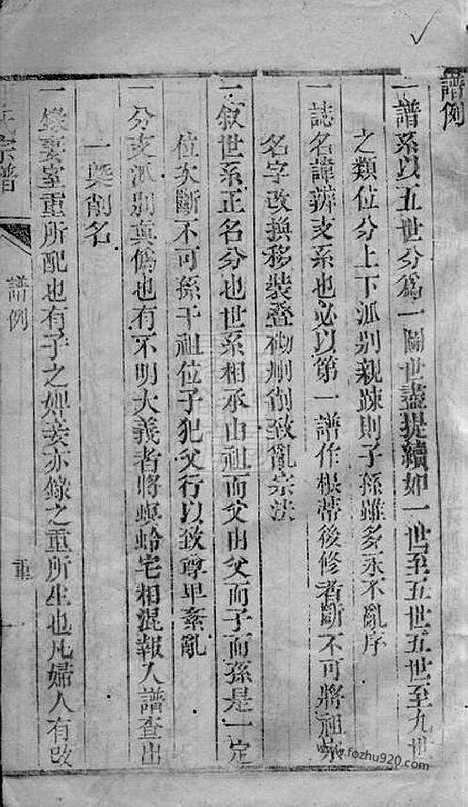 譜例
一譜系以五世分為一圖世盡提續如一世至五世五世至九世
之類位分上下派别親疎則子孫雖多永不亂序
一誌名諱辨支系也必以第一譜作根蒂後修者斷不可將祖宗
名字改換移裝叠砌刪削致亂宗法
一叙世系正名分也世系相承由祖而父由父而子而孫是一定
位次斷不可孫干祖位子犯父行以致尊卑紊亂
一分支派别真僞也有不明大義者將螟蛉宅相混報入譜查出
一槩削名
一錄妻室重所配也有子之婢妾亦錄之重所生也凡婦人有改
氏宗譜
譜例
重
一
www.fozhu920.com